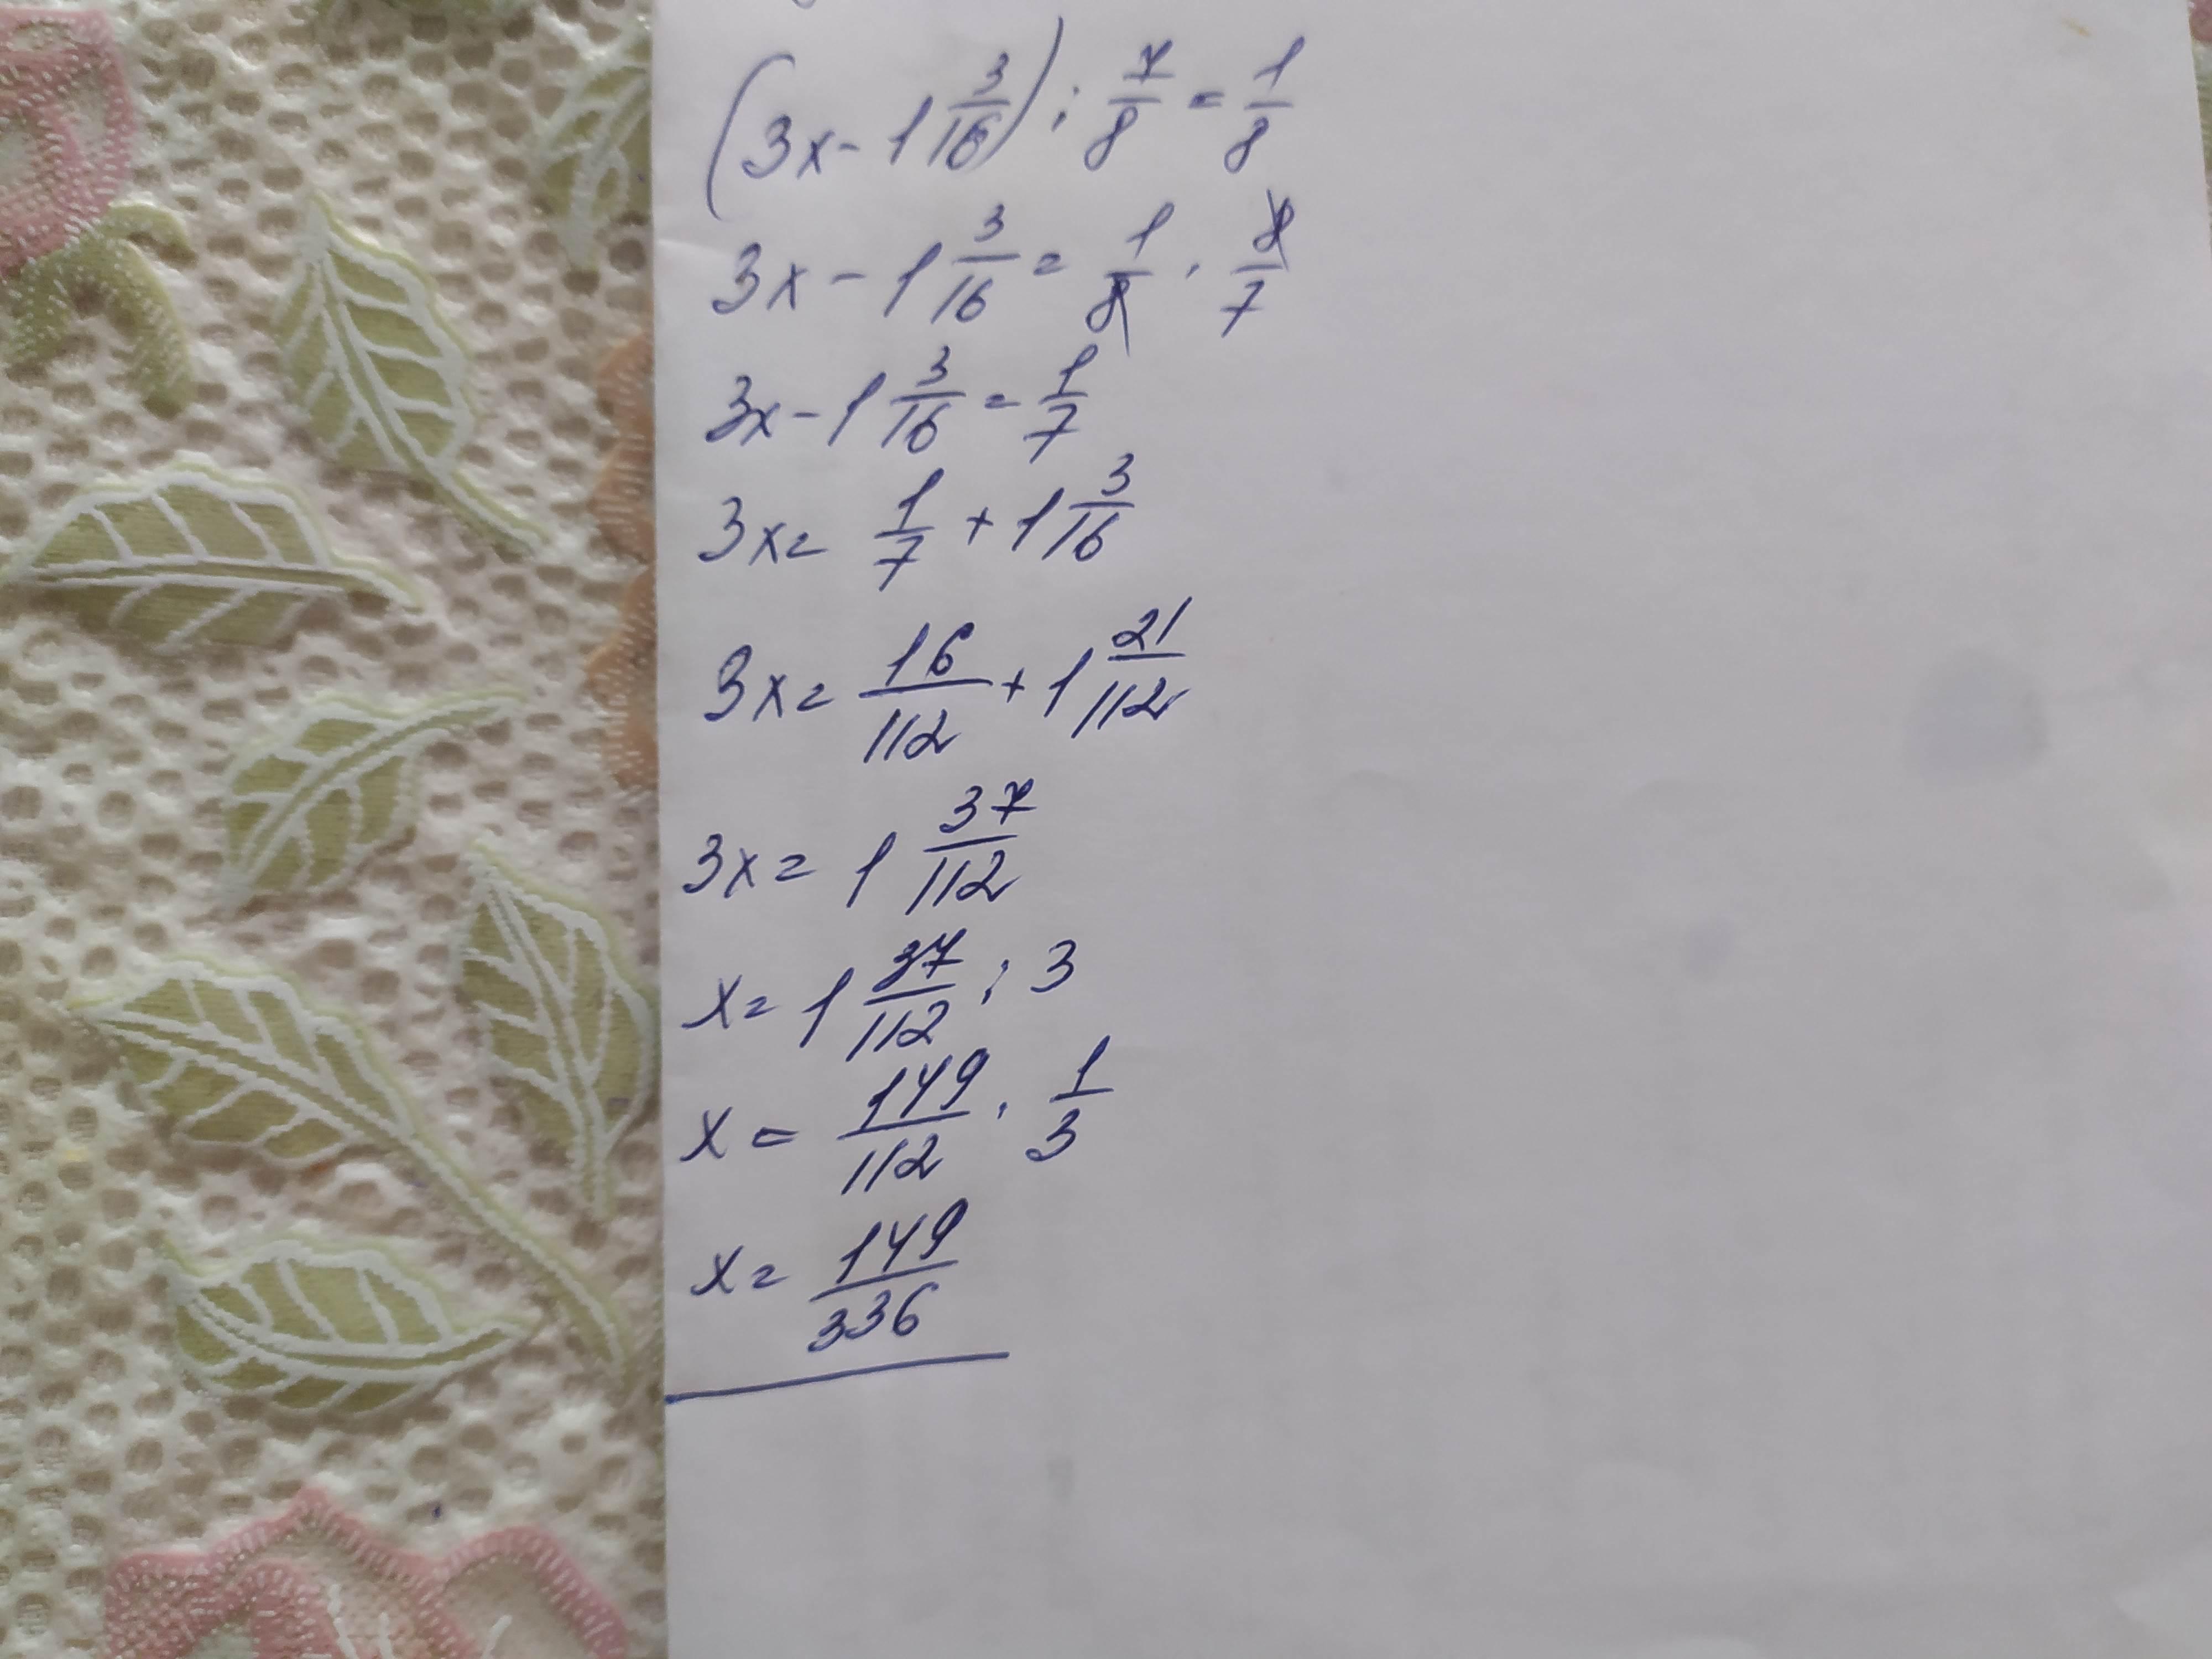 (3x - 1 3/16) : 7/8 = 1/8
3x - 1 3/16 = 1/8 · 8/7
3x - 1 3/16 = 1/7
3x = 1/7 + 1 3/16
3x = 16/112 + 1 21/112
3x = 1 37/112
x = 1 37/112 : 3
x = 149/112 · 1/3
x = 149/336